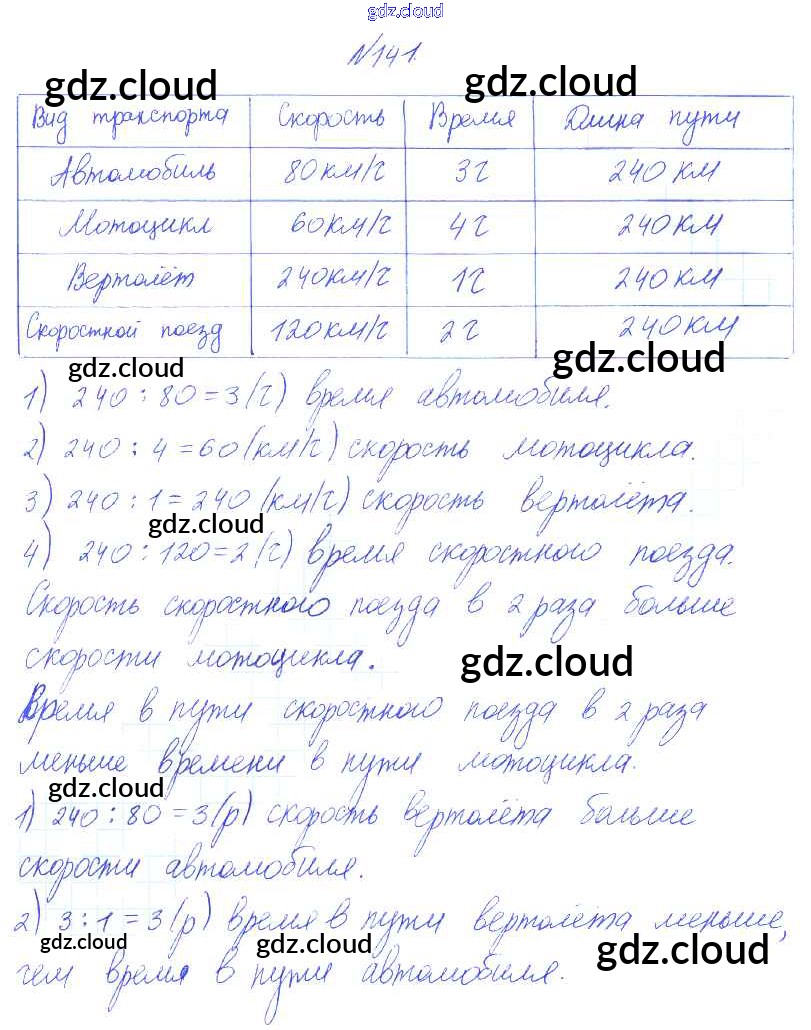 gdz.cloud
№141.
gdz.cloud gdz.cloud
Вид транспорта Скорость Время Длина пути
Автомобиль 80км/ч 3ч 240 км
Мотоцикл 60км/ч 4ч 240км
Вертолёт 240км/ч 1ч 240км
Скоростной поезд 120км/ч 2ч 240км
gdz.cloud gdz.cloud
1) 240 : 80 = 3 (ч) время автомобиля.
2) 240 : 4 = 60 (км/ч) скорость мотоцикла.
3) 240 : 1 = 240 (км/ч) скорость вертолёта.
gdz.cloud
4) 240 : 120 = 2 (ч) время скоростного поезда.
Скорость скоростного поезда в 2 раза больше
скорости мотоцикла.
gdz.cloud
Время в пути скоростного поезда в 2 раза
меньше времени в пути мотоцикла.
gdz.cloud
1) 240 : 80 = 3 (р) скорость вертолёта больше
скорости автомобиля.
2) 3 : 1 = 3 (р) время в пути вертолёта меньше,
gdz.cloud gdz.cloud gdz.cloud
чем время в пути автомобиля.